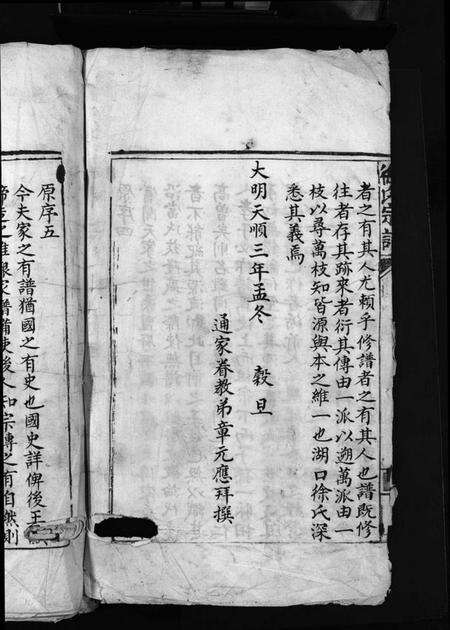 氏宗譜
者之有其人尤賴乎修譜者之有其人也譜既修
往者存其跡來者衍其傳由一派以遡萬派由一
枝以尋萬枝知皆源與本之維一也湖口徐氏深
悉其義焉
大明天順三年孟冬 穀旦
通家眷教弟章元應拜撰
原序五
今夫家之有譜猶國之有史也國史詳俾後王
之維家譜備使後人知宗傳之有自然則